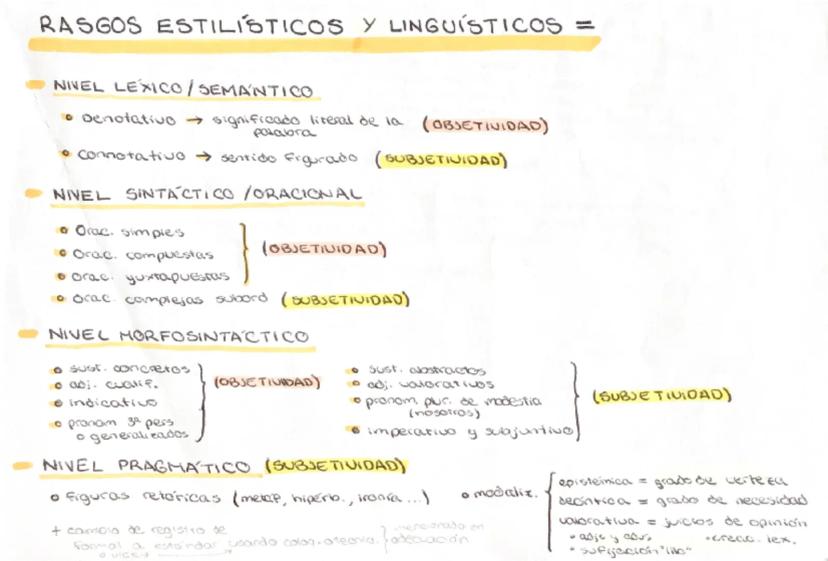 RASGOS ESTILÍSTICOS Y LINGUÍSTICOS =
NIVEL LÉXICO/SEMÁNTICO
Denotativo → significado literal de la palabra (OBJETIVIDAD)
Connotativo → sentido figurado (SUBJETIVIDAD)
NIVEL SINTÁCTICO/ORACIONAL
Orac. simples
Orac. compuestas
Orac. yuxtapuestas
(OBJETIVIDAD)
Orac. complejas subord (SUBJETIVIDAD)
NIVEL MORFOSINTÁCTICO
sust. concretos
adj. cualif.
indicativo
pronom 3ª pers
o generalizados
(OBJETIVIDAD)
sust. abstractos
adj. valorativos
pronom plur. de modestia
(nosotros)
imperativo y subjuntivo
(SUBJETIVIDAD)
NIVEL PRAGMÁTICO (SUBJETIVIDAD)
figuras retóricas (metáf, hipérb., ironía...)
modaliz.
epistémica = grado de certeza
deóntica = grado de necesidad
valorativa = juicios de opinión
adjs y advs
creac. lex.
sufijación "illo"
+ cambio de registro de
formal a estándar usando coloq. o tecnic.
mencionado en
adecuación